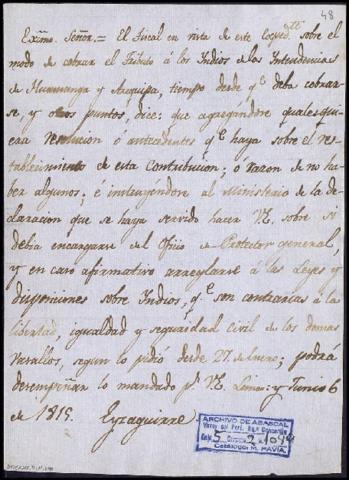 48
Exmo. Señor.= El Fiscal en vista de este Exped.te sobre el
modo de cobrar el Tributo á los Indios de las Intendencias
de Huamanga y Arequipa, tiempo desde q.e deba cobrar-
se, y otros puntos, dice: que agregandose qualesqui-
era resolucion ó antecedentes q.e haya sobre el res-
tablecimiento de esta Contribucion; ó razon de no ha-
ber algunos; é instruyendose al Ministerio de la de-
claracion que se haya servido hacer V.E. sobre si
debia encargarse del Oficio de Protector general,
y en caso afirmativo arreglarse á las Leyes y
disposiciones sobre Indios, q.e son contrarias á la
libertad, igualdad y seguridad Civil de los demas
Vasallos, segun lo pidió desde 27 de Enero; podrá
desempeñar lo mandado p.r V.E. Lima y Junio 6
de 1815. Eyzaguirre.
ARCHIVO DE ABASCAL
Virrey del Perú, Mqs Concordia
Catálogo: M. PAVIA.